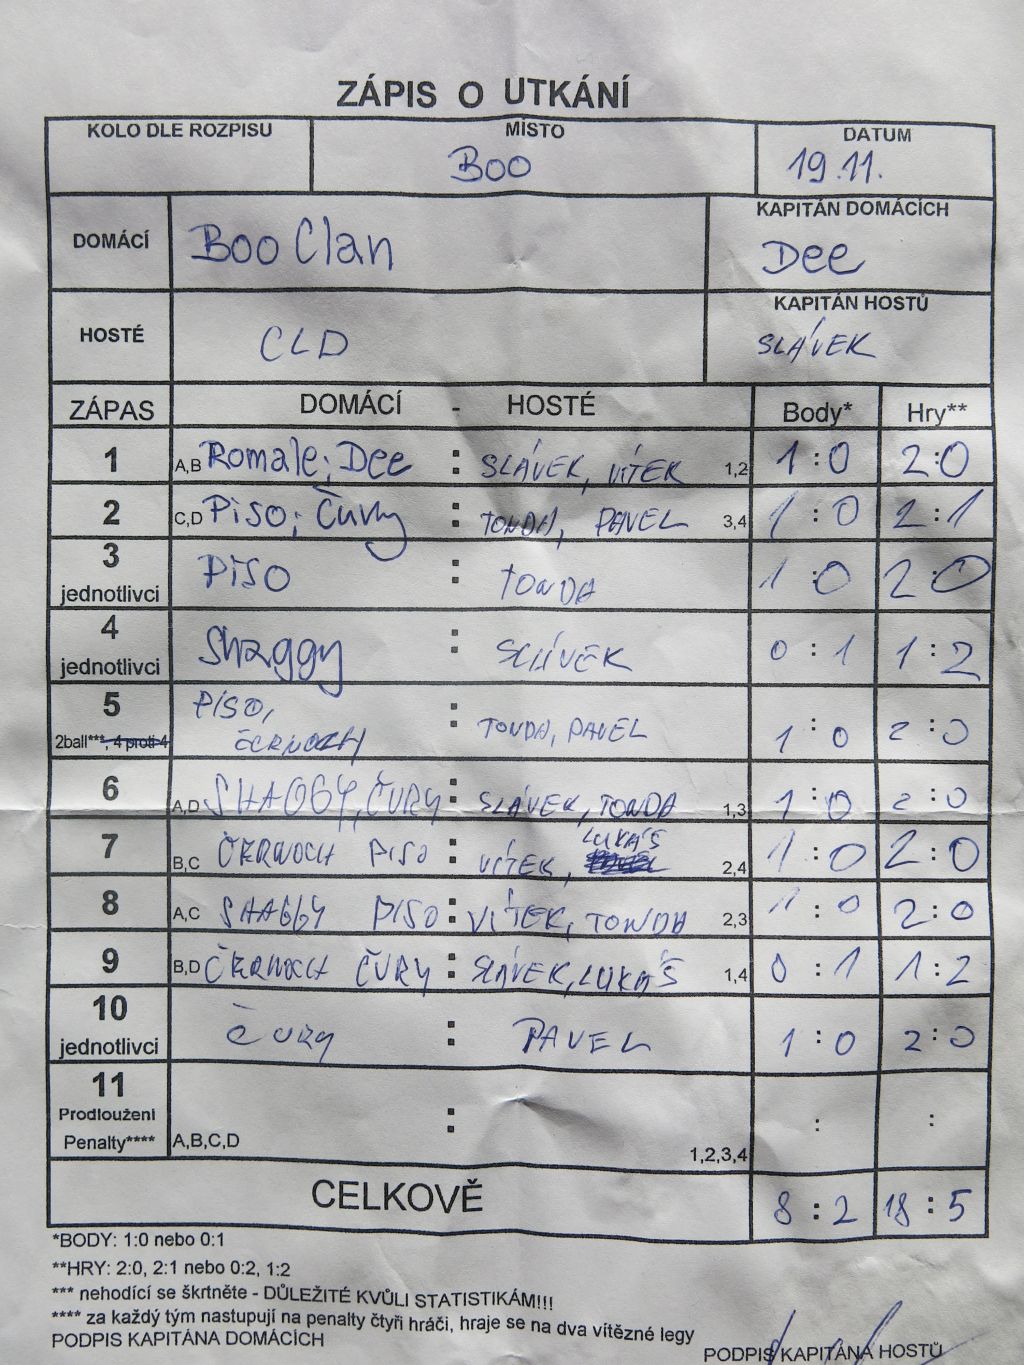 ZÁPIS O UTKÁNÍ
KOLO DLE ROZPISU MÍSTO DATUM
Boo 19.11.
DOMÁCÍ Boo Clan KAPITÁN DOMÁCÍCH
Dee
HOSTÉ CLD KAPITÁN HOSTŮ
SLÁVEK
ZÁPAS DOMÁCÍ - HOSTÉ Body* Hry**
1 A,B Romale; Dee : SLÁVEK, VÍTEK 1,2 1:0 2:0
2 C,D Piso; Čury : TONDA, PAVEL 3,4 1:0 2:1
3 jednotlivci PISO : TONDA 1:0 2:0
4 jednotlivci Shaggy : SLÁVEK 0:1 1:2
5 PISO, : TONDA, PAVEL 1:0 2:0
2ball***, 4 proti 4 ČERNOCH
6 A,D SHAGGY, ČURY : SLÁVEK, TONDA 1,3 1:0 2:0
7 B,C ČERNOCH PISO : VÍTEK, LUKÁŠ 2,4 1:0 2:0
8 A,C SHAGGY PISO : VÍTEK, TONDA 2,3 1:0 2:0
9 B,D ČERNOCH ČURY : SLÁVEK, LUKÁŠ 1,4 0:1 1:2
10 jednotlivci ČURY : PAVEL 1:0 2:0
11
Prodloužení : : :
Penalty**** A,B,C,D 1,2,3,4
CELKOVĚ 8:2 18:5
*BODY: 1:0 nebo 0:1
**HRY: 2:0, 2:1 nebo 0:2, 1:2
*** nehodící se škrtněte - DŮLEŽITÉ KVŮLI STATISTIKÁM!!!
**** za každý tým nastupují na penalty čtyři hráči, hraje se na dva vítězné legy
PODPIS KAPITÁNA DOMÁCÍCH PODPIS KAPITÁNA HOSTŮ